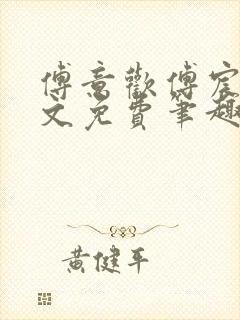 傅意歡傅宸
文免費筆趣
黃健平